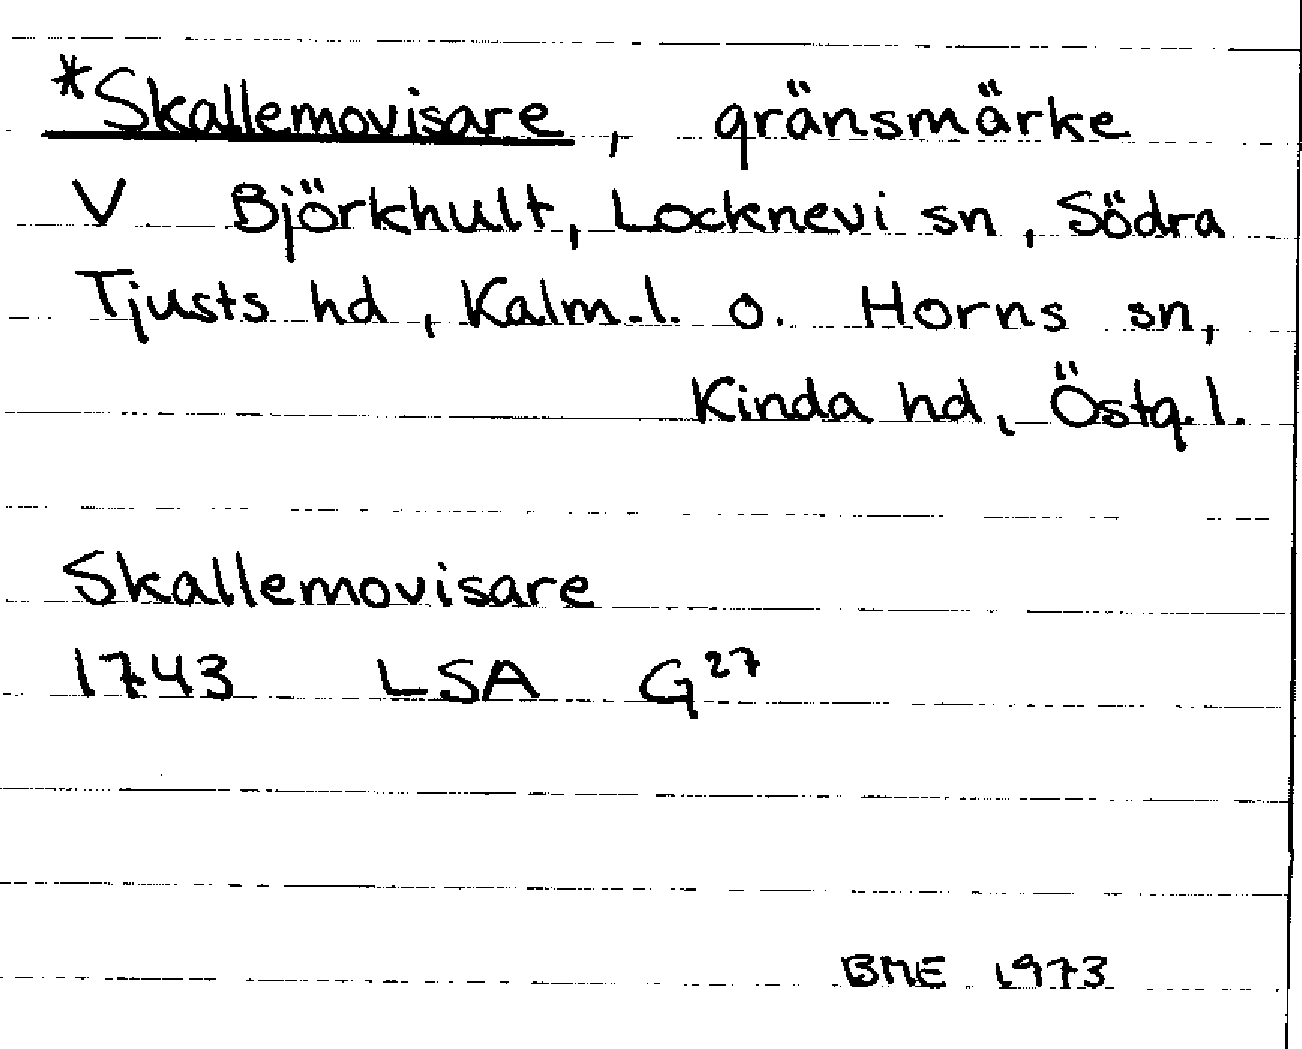 *Skallemovisare, gränsmärke
V Björkhult, Locknevi sn, Södra
Tjusts hd, Kalm.l. o. Horns sn,
Kinda hd, Östg.l.
Skallemovisare
1743 LSA G²⁷
BME 1973